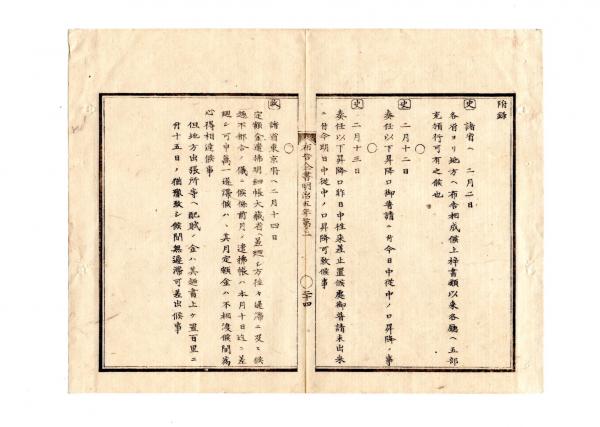 附録
史 諸省ヘ 二月二日
各省ヨリ地方ヘ布告相成候上梓書類以来各廳ヘ五部
充頒行可有之候也
二月十二日
史
委任以下昇降口御普請ニ付今日中従中ノ口昇降ノ事
史 二月十三日
委任以下昇降口昨日中往来差止置候處御普請未出来
ニ付今明日中従中ノ口昇降可致候事
布告全書明治五年第二
二十四
諸省東京府ヘ二月十四日
定額金遣拂明細帳大藏省ヘ差廻シ方往々遅滞ニ及ヒ候
テハ不都合ノ儀ニ候條前月ノ遣拂帳ハ本月十日迄ニ差
廻シ可申萬一遅滞候ハヽ其月定額金ハ不相渡候間為
心得相達候事
但地方出張所等ヘ配賦ノ金ハ其趣書上ケ置百里ニ
付十五日ノ猶豫致シ候間無遅滞可差出候事